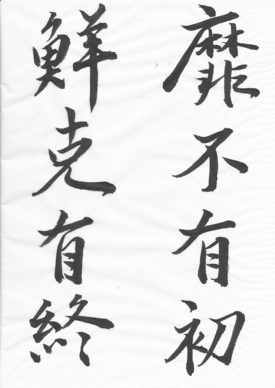 靡不有初
鮮克有終